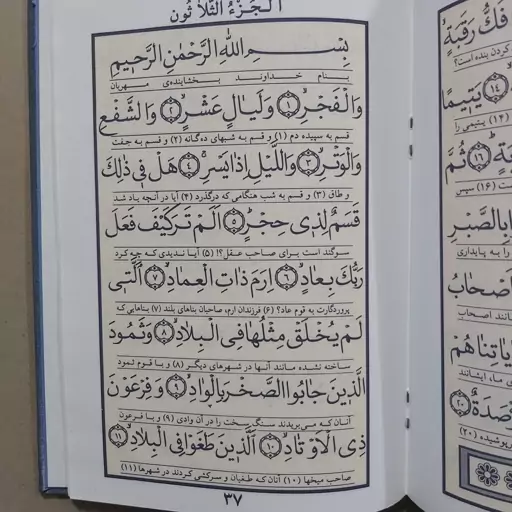 الجزء الثلاثون
بِسْمِ اللّٰهِ الرَّحْمٰنِ الرَّحِيمِ
بنام خداوند بخشاینده‌ی مهربان
وَالْفَجْرِ ۱ وَلَيَالٍ عَشْرٍ ۲ وَالشَّفْعِ
قسم به سپیده دم (۱) و قسم به شبهای ده‌گانه (۲) و قسم به جفت
وَالْوَتْرِ ۳ وَاللَّيْلِ إِذَا يَسْرِ ۴ هَلْ فِي ذٰلِكَ
و طاق (۳) و قسم به شب هنگامی که درگذرد (۴) آیا در آنچه یاد شد
قَسَمٌ لِذِي حِجْرٍ ۵ أَلَمْ تَرَ كَيْفَ فَعَلَ
سوگند است برای صاحب عقل؟! (۵) آیا ندیدی که چه کرد
رَبُّكَ بِعَادٍ ۶ إِرَمَ ذَاتِ الْعِمَادِ ۷ الَّتِي
پروردگارت به قوم عاد؟ (۶) فرزندان ارم، صاحبان بناهای بلند (۷) بناهایی که
لَمْ يُخْلَقْ مِثْلُهَا فِي الْبِلَادِ ۸ وَثَمُودَ
ساخته نشده مانند آنها در شهرهای دیگر (۸) و با قوم ثمود
الَّذِينَ جَابُوا الصَّخْرَ بِالْوَادِ ۹ وَفِرْعَوْنَ
آنان که می‌بریدند سنگ سخت را در آن وادی (۹) و با فرعون
ذِي الْأَوْتَادِ ۱۰ الَّذِينَ طَغَوْا فِي الْبِلَادِ ۱۱
صاحب میخها (۱۰) آنان که طغیان و سرکشی کردند در شهرها (۱۱)
۳۷
فَكُّ رَقَبَةٍ
کردن بنده است؟
۱۴ يَتِيمًا
(۱۴) یتیمی را
۱۶ ثُمَّ
(۱۶) سپس
بِالصَّبْرِ
را به پایداری
أَصْحَابُ
مانند اصحاب
بِآيَاتِنَا هُمْ
ی ماء ایشانند
۲۰
(۲۰)